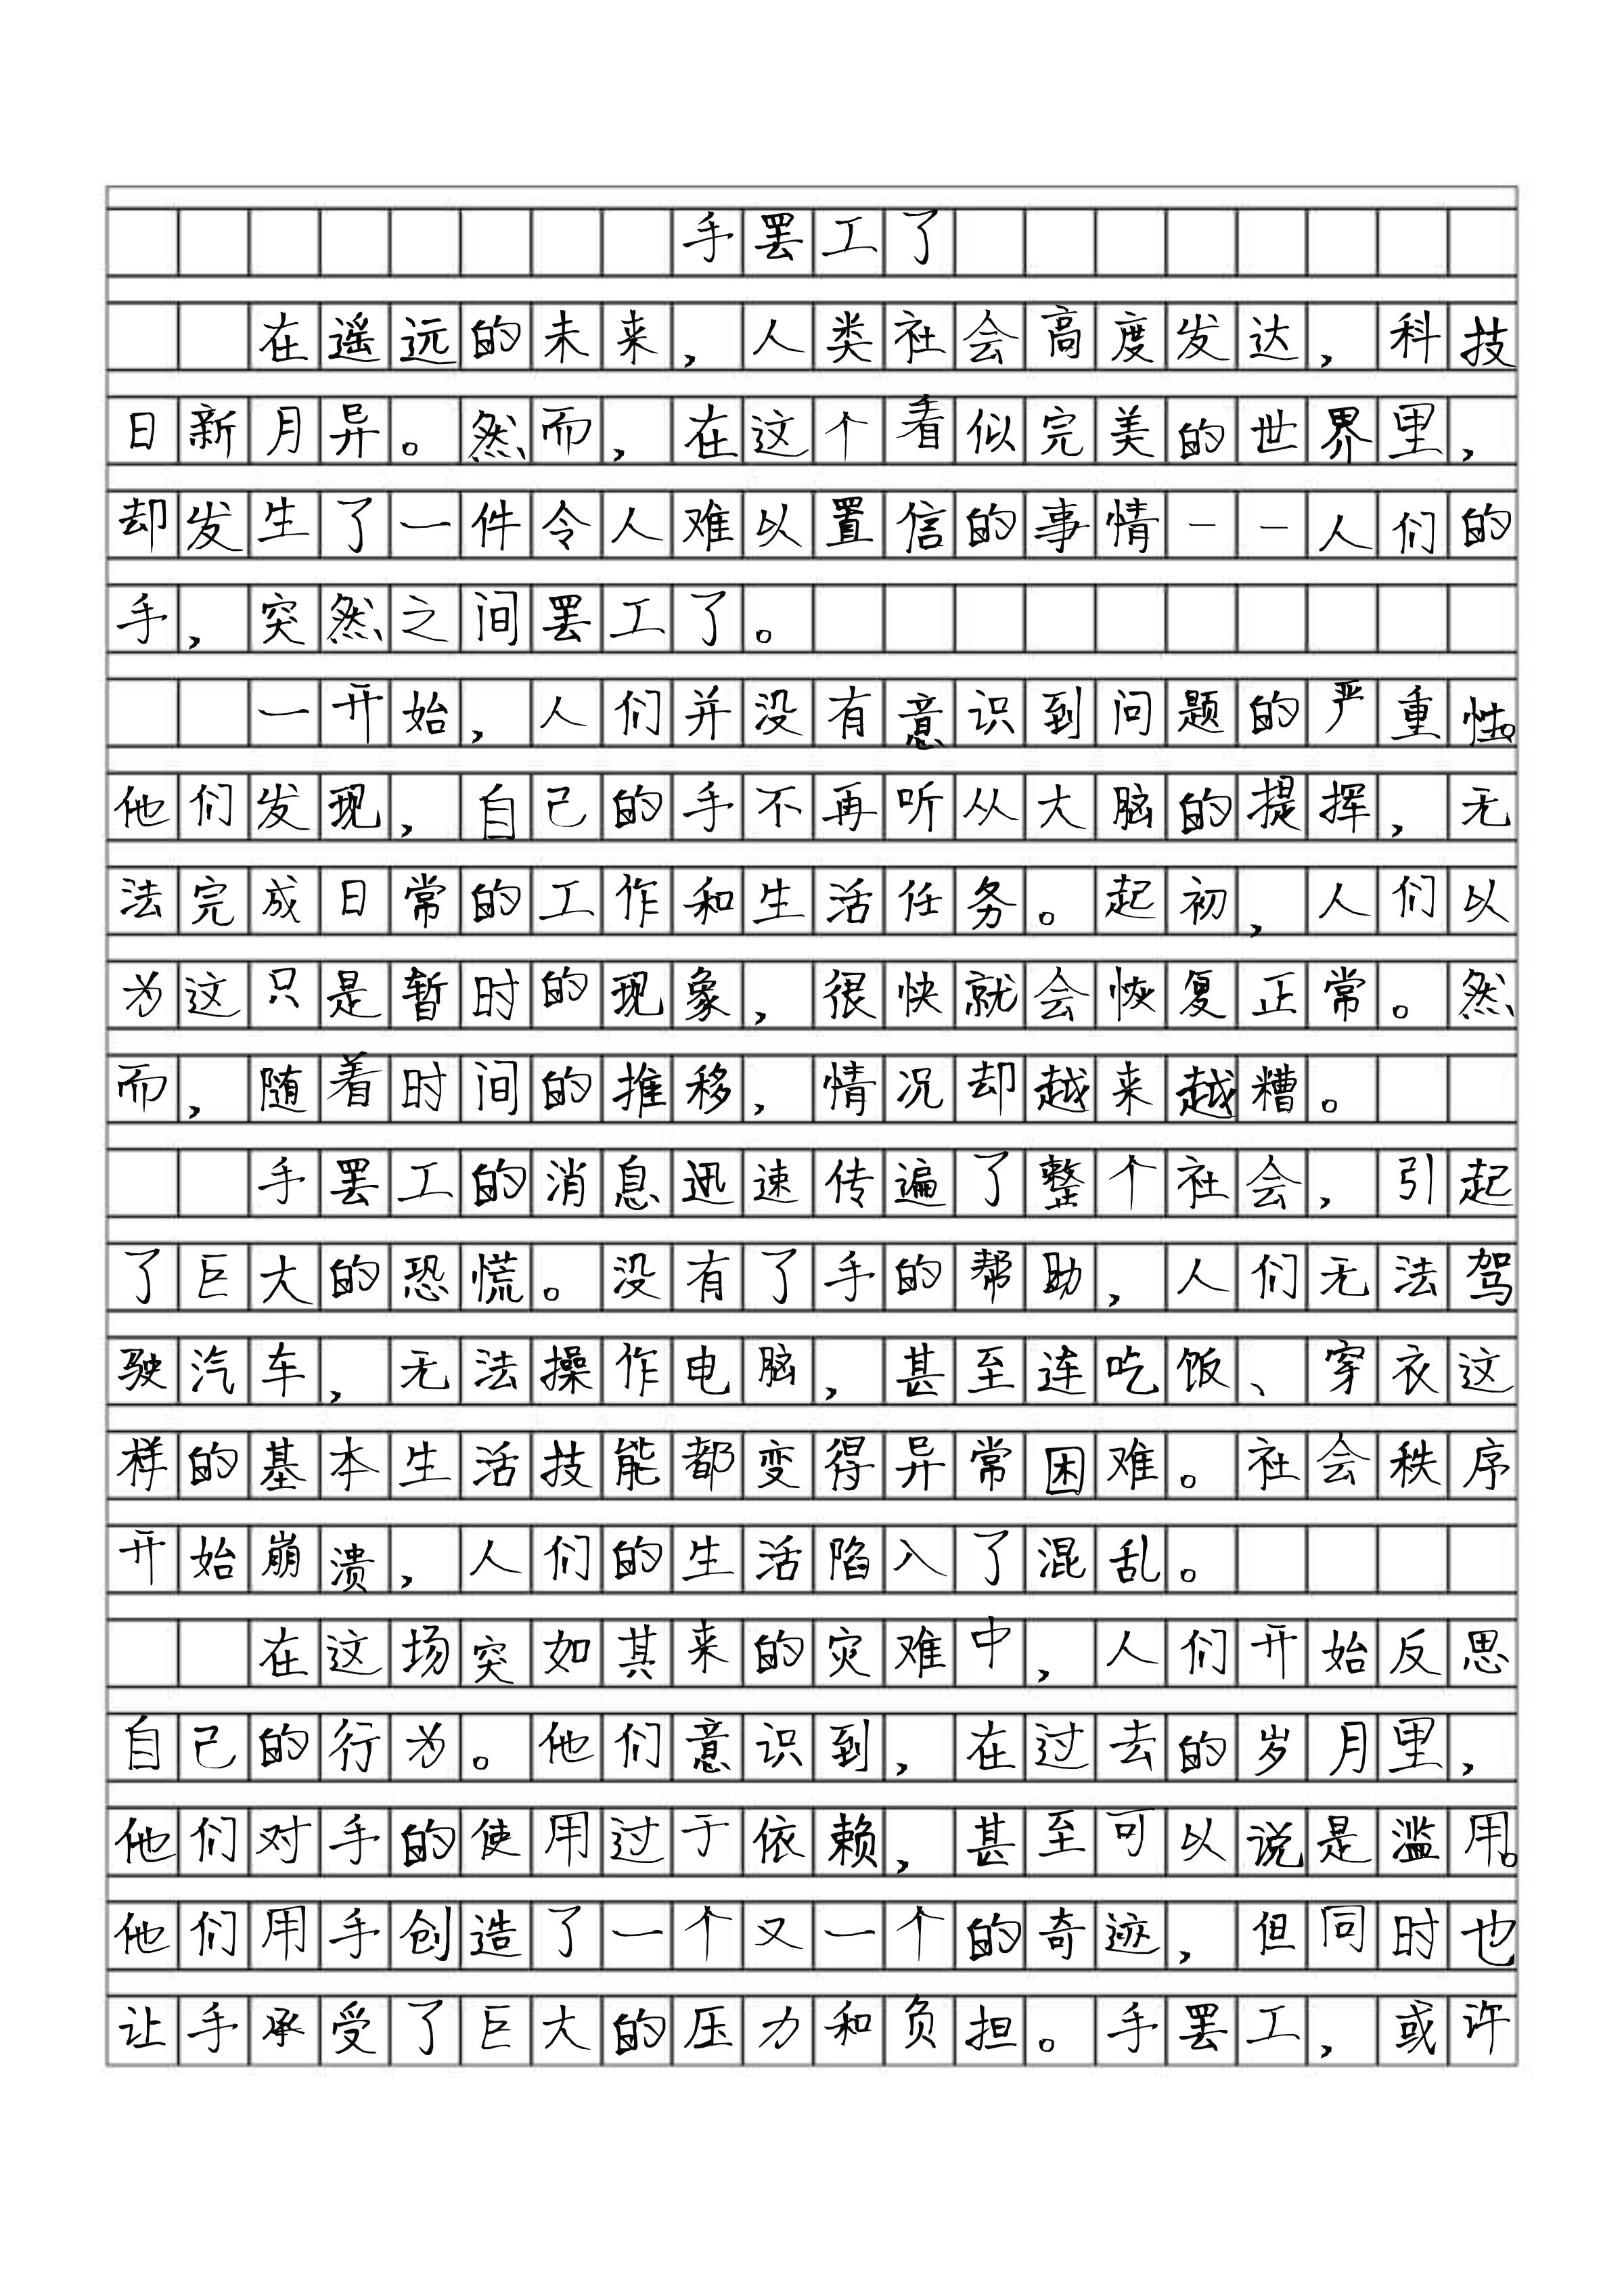 手罢工了
在遥远的未来，人类社会高度发达，科技
日新月异。然而，在这个看似完美的世界里，
却发生了一件令人难以置信的事情－－人们的
手，突然之间罢工了。
一开始，人们并没有意识到问题的严重性。
他们发现，自己的手不再听从大脑的提挥，无
法完成日常的工作和生活任务。起初，人们以
为这只是暂时的现象，很快就会恢复正常。然
而，随着时间的推移，情况却越来越糟。
手罢工的消息迅速传遍了整个社会，引起
了巨大的恐慌。没有了手的帮助，人们无法驾
驶汽车，无法操作电脑，甚至连吃饭、穿衣这
样的基本生活技能都变得异常困难。社会秩序
开始崩溃，人们的生活陷入了混乱。
在这场突如其来的灾难中，人们开始反思
自己的行为。他们意识到，在过去的岁月里，
他们对手的使用过于依赖，甚至可以说是滥用。
他们用手创造了一个又一个的奇迹，但同时也
让手承受了巨大的压力和负担。手罢工，或许